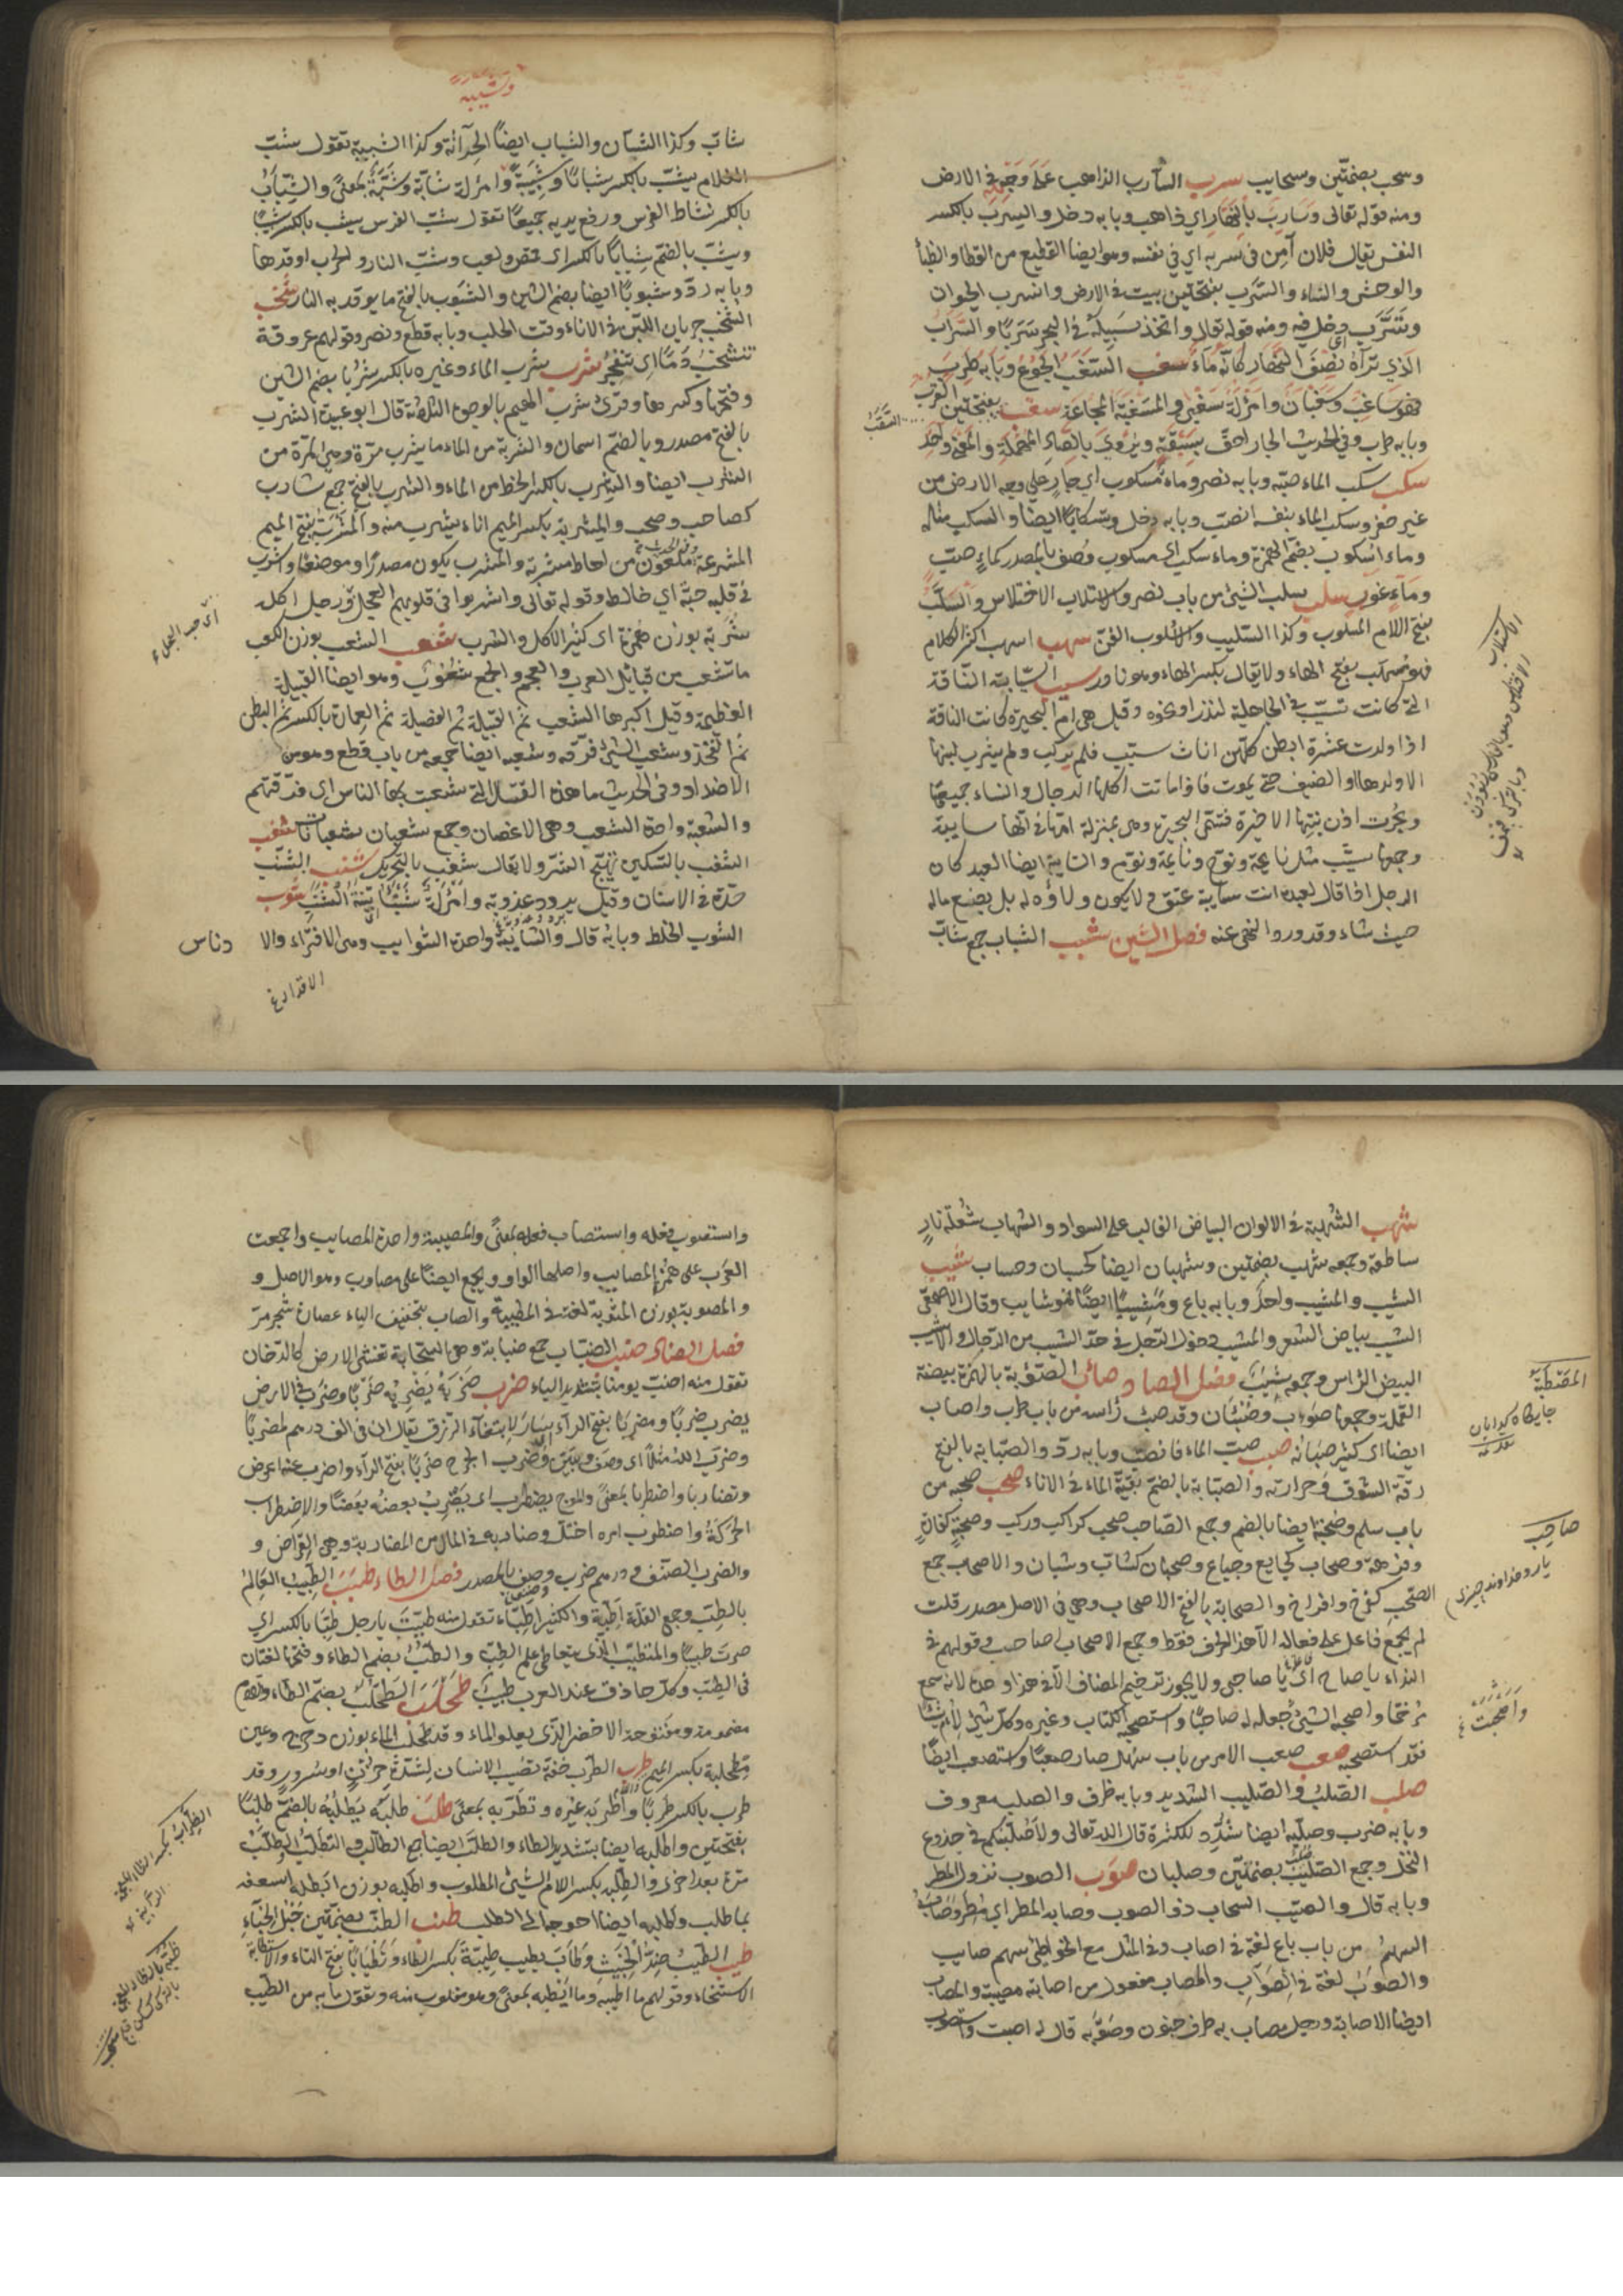 وسحب بضمتين وسحايب سرب السارب الذاهب على وجهه في الارض
ومنه قوله تعالى وسارب بالنهار اي ذاهب وبابه دخل والسرب بالكسر
النفس يقال فلان آمن في سربه اي في نفسه وهو ايضا القطيع من القطا والظبا
والوحش والنساء والسرب بفتحتين بيت في الارض وانسرب الحيوان
وتسرب دخل فيه ومنه قوله تعالى واتخذ سبيله في البحر سربا والسراب
الذي تراه نصف النهار كانه ماء سغب السغب الجوع وبابه طرب
فهو ساغب وسغبان وامرأة سغبى والمسغبة المجاعة سقب بفتحتين القرب
وبابه طرب وفي الحديث الجار احق بسقبه ويروى بالصاد المهملة والمعنى واحد
سكب سكب الماء صبه وبابه نصر وماء مسكوب اي جار على وجه الارض من
غير حفر وسكب الماء بنفسه انصب وبابه دخل وتسكابا ايضا وانسكب مثله
وماء اسكوب بضم الهمزة وماء سكب اي مسكوب وصف بالمصدر كماء صب
وماء غور سلب سلب الشيء من باب نصر والاستلاب الاختلاس والسلب
بفتح اللام المسلوب وكذا السليب والاسلوب الفن سهب اسهب اكثر الكلام
فهو مسهب بفتح الهاء ولا يقال بكسر الهاء وهو نادر سيب السايبة الناقة
التي كانت تسيب في الجاهلية لنذر او نحوه وقيل هي ام البحيرة كانت الناقة
اذا ولدت عشرة ابطن كلهن اناث سيبت فلم تركب ولم يشرب لبنها
الا ولدها او الضيف حتى يموت فاذا ماتت اكلها الرجال والنساء جميعا
وبحرت اذن بنتها الاخيرة فتسمى البحيرة وهي بمنزلة امها في انها سايبة
وجمعها سيب مثل نايحة ونوح ونايمة ونوم والسايبة ايضا العبد كان
الرجل اذا قال لعبده انت سايبة عتق ولا يكون ولاؤه له بل يضع ماله
حيث شاء وقد ورد النهي عنه فصل الشين شبب الشباب جمع شاب
وشبيبة
شاب وكذا الشبان والشباب ايضا الحداثة وكذا الشبيبة تقول شب
الغلام يشب بالكسر شبابا وشبيبة وامرأة شابة وشبة بمعنى والشباب
بالكسر نشاط الفرس ورفع يديه جميعا تقول شب الفرس يشب بالكسر شبيبا
ويشب بالضم شبابا بالكسر اي قمص ولعب وشب النار والحرب اوقدها
وبابه رد وشبوبا ايضا بضم الشين والشبوب بالفتح ما يوقد به النار شخب
الشخب جريان اللبن في الاناء وقت الحلب وبابه قطع ونصر وقولهم عروقه
تنشخب دما اي تنفجر شرب شرب الماء وغيره بالكسر شربا بضم الشين
وفتحها وكسرها وقرئ شرب الهيم بالوجوه الثلاثة قال ابو عبيدة الشرب
بالفتح مصدر وبالضم اسمان والشربة من الماء ما يشرب مرة وهي المرة من
الشرب ايضا والشرب بالكسر الحظ من الماء والشرب بالفتح جمع شارب
كصاحب وصحب والمشربة بكسر الميم اناء يشرب منه والمشربة بفتح الميم
المشرعة وفي الحديث ملعون من احاط مشربة والمشرب يكون مصدرا وموضعا واشرب
في قلبه حبه اي خالط وقوله تعالى واشربوا في قلوبهم العجل ورجل اكلة
شربة بوزن همزة اي كثير الاكل والشرب شعب الشعب بوزن الكعب
ما تشعب من قبائل العرب والعجم والجمع شعوب وهو ايضا القبيلة
العظيمة وقيل اكبرها الشعب ثم القبيلة ثم الفصيلة ثم العمارة بالكسر ثم البطن
ثم الفخذ وشعب الشيء فرقه وشعبه ايضا جمعه من باب قطع وهو من
الاضداد وفي الحديث ما هذه الفتيا التي شعبت بها الناس اي فرقتهم
والشعبة واحدة الشعب وهي الاغصان وجمع شعبان شعبانات شغب
الشغب بالتسكين تهيج الشر ولا يقال شغب بالتحريك شنب الشنب
حدة في الاسنان وقيل برد وعذوبة وامرأة شنباء بينة الشنب شوب
الشوب الخلط وبابه قال والشايبة واحدة الشوايب وهي الاقذار والا
دناس
الاقذار
اي حب العجل
شهب الشهبة في الالوان البياض الغالب على السواد والشهاب شعلة نار
ساطعة وجمعه شهب بضمتين وشهبان ايضا كحسبان وحساب شيب
الشيب والمشيب واحد وبابه باع ومشيبا ايضا فهو شايب وقال الاصمعي
الشيب بياض الشعر والمشيب دخول الرجل في حد الشيب من الرجال والاشيب
المبيض الراس وجمعه شيب فصل الصاد صأب الصؤابة بالهمزة بيضة
القملة وجمعها صؤاب وصئبان وقد صئب راسه من باب طرب واصاب
ايضا اي كثر صئبانه صبب صب الماء فانصب وبابه رد والصبابة بالفتح
رقة الشوق وحرارته والصبابة بالضم بقية الماء في الاناء صحب صحبه من
باب سلم وصحبة ايضا بالضم وجمع الصاحب صحب كراكب وركب وصحبة كفاره
وفرهة وصحاب كجايع وجياع وصحبان كشاب وشبان والاصحاب جمع
الصحب كفرخ وافراخ والصحابة بالفتح الاصحاب وهي في الاصل مصدر قلت
لم يجمع فاعل على فعالة الا هذا الحرف فقط وجمع الاصحاب اصاحيب وقولهم في
النداء يا صاح اي يا صاحبي ولا يجوز ترخيم المضاف الا في هذا وحده لانه سمع
مرخما واصحبه الشيء جعله له صاحبا واستصحبه الكتاب وغيره وكل شيء لاءم شيئا
فقد استصحبه صعب صعب الامر من باب سهل صار صعبا واستصعب ايضا
صلب الصلب والصليب الشديد وبابه ظرف والصلب معروف
وبابه ضرب وصلبه ايضا شدد للكثرة قال الله تعالى ولاصلبنكم في جذوع
النخل وجمع الصليب صلب بضمتين وصلبان صوب الصوب نزول المطر
وبابه قال والصيب السحاب ذو الصوب وصابه المطر اي مطر وصاب
السهم من باب باع لغة في اصاب وفي المثل مع الخواطئ سهم صايب
والصوب لغة في الصواب والمصاب مفعول من اصابته مصيبة والمصاب
ايضا الاصابة ورجل مصاب به طرف جنون وصوبه قال له اصبت واستصوب
صاحب
يار وخداوند چيزى
واستصوب فعله واستصاب فعله بمعنى والمصيبة واحدة المصايب واجمعت
العرب على همز المصايب واصلها الواو ويجمع ايضا على مصاوب وهو الاصل و
والمصوبة بوزن المثوبة لغة في المصيبة والصاب بتخفيف الباء عصارة شجر مر
فصل الضاد ضبب الضباب جمع ضبابة وهي السحابة تغشى الارض كالدخان
تقول منه اضب يومنا بتشديد الباء ضرب ضربه يضربه ضربا وضرب في الارض
يضرب ضربا ومضربا بفتح الراء سار لابتغاء الرزق يقال ان في الف درهم لمضربا
وضرب الله مثلا اي وصف وبين وضرب الجرح ضربا بفتح الراء واضرب عنه اعرض
وتضاربا واضطربا بمعنى والموج يضطرب اي يضرب بعضه بعضا والاضطراب
الحركة واضطرب امره اختل وضاربه في المال من المضاربة وهي القراض و
والضرب الصنف ودرهم ضرب وصف بالمصدر فصل الطاء طبب الطبيب العالم
بالطب وجمع القلة اطبة والكثير اطباء تقول منه طببت يا رجل طبا بالكسر اي
صرت طبيبا والمتطبب الذي يتعاطى علم الطب والطب بضم الطاء وفتحها لغتان
في الطب وكل حاذق عند العرب طبيب طحلب الطحلب بضم الطاء واللام
مضمومة ومفتوحة الاخضر الذي يعلو الماء وقد طحلب الماء بوزن دحرج وعين
مطحلبة بكسر اللام طرب الطرب خفة تصيب الانسان لشدة حزن او سرور وقد
طرب بالكسر طربا واطربه غيره وتطربه بمعنى طلب طلبه يطلبه بالضم طلبا
بفتحتين واطلبه ايضا بتشديد الطاء والطلب ايضا جمع الطالب والتطلب الطلب
مرة بعد اخرى والطلبة بكسر اللام الشيء المطلوب واطلبه بوزن ابطله اسعفه
بما طلب واطلبه ايضا احوجه الى الطلب طنب الطنب بضمتين حبل الخباء
طيب الطيب ضد الخبيث وطاب يطيب طيبة بكسر الطاء وتطيابا بفتح التاء والاستطابة
الاستنجاء وقولهم ما اطيبه وما ايطبه بمعنى وهو مقلوب منه وتقول ما به من الطيب